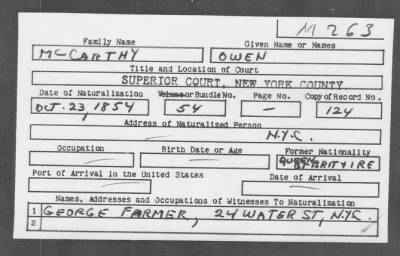 M 263
Family Name Given Name or Names
McCARTHY OWEN
Title and Location of Court
SUPERIOR COURT, NEW YORK COUNTY.
Date of Naturalization Volume or Bundle No. Page No. Copy of Record No.
OCT. 23, 1854 54 — 124
Address of Naturalized Person
N.Y.C.
Occupation Birth Date or Age Former Nationality
— — QUEEN OF BRIT & IRE
Port of Arrival in the United States Date of Arrival
— —
Names, Addresses and Occupations of Witnesses To Naturalization
1 GEORGE FARMER, 24 WATER ST, N.Y.C.
2